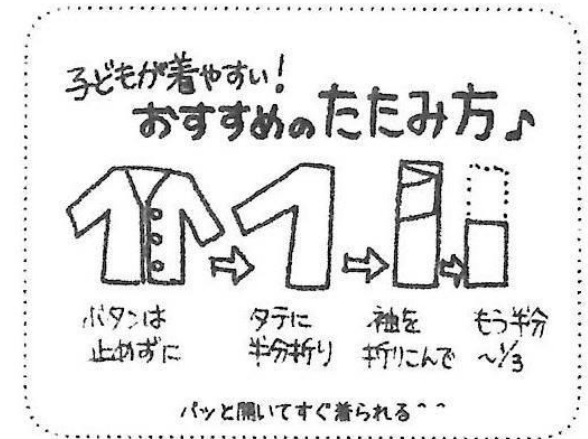 子どもが着やすい!
おすすめのたたみ方♪
ボタンは
止めずに
タテに
半分折り
袖を
折りこんで
もう半分
〜1/3
パッと開いてすぐ着られる^^